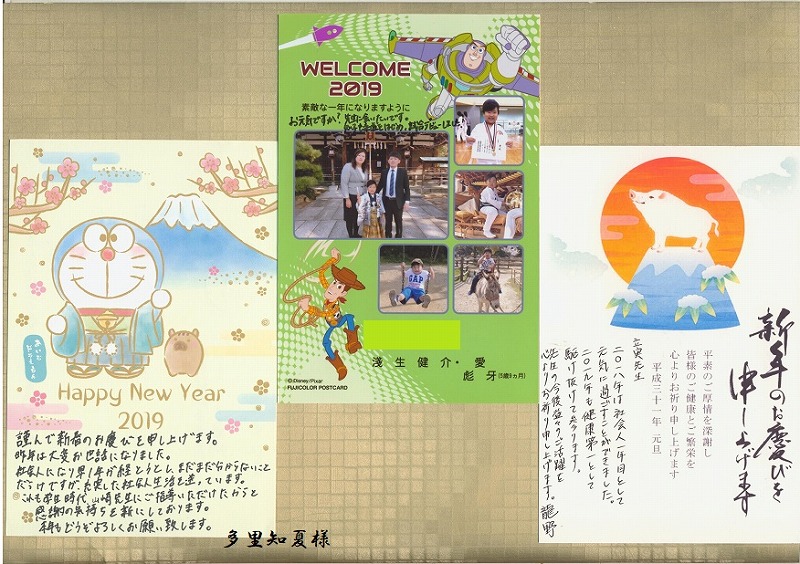 Happy New Year
2019
謹んで新春のお慶びを申し上げます。
昨年は大変お世話になりました。
社会人になり早1年が経とうとし、まだまだ分からないこと
だらけですが、充実した社会人生活を送っています。
これも学生時代、山崎先生にご指導いただけたからと
感謝の気持ちを新にしております。
本年もどうぞよろしくお願い致します。
多里知夏様
WELCOME
2019
素敵な一年になりますように
お元気ですか?先生に会いたいです。
GAP
淺生健介・愛
彪牙(5歳9ヵ月)
©Disney/Pixar
FUJICOLOR POSTCARD
新年のお慶びを
申し上げます
平素のご厚情を深謝し
皆様のご健康とご繁栄を
心よりお祈り申し上げます
平成三十一年 元旦
立史先生
二〇一八年は社会人一年目として
元気に過ごすことができました。
二〇一九年も健康第一として
駆け抜けて参ります。
先生の今後益々のご活躍を
心よりお祈り申し上げます。 龍野